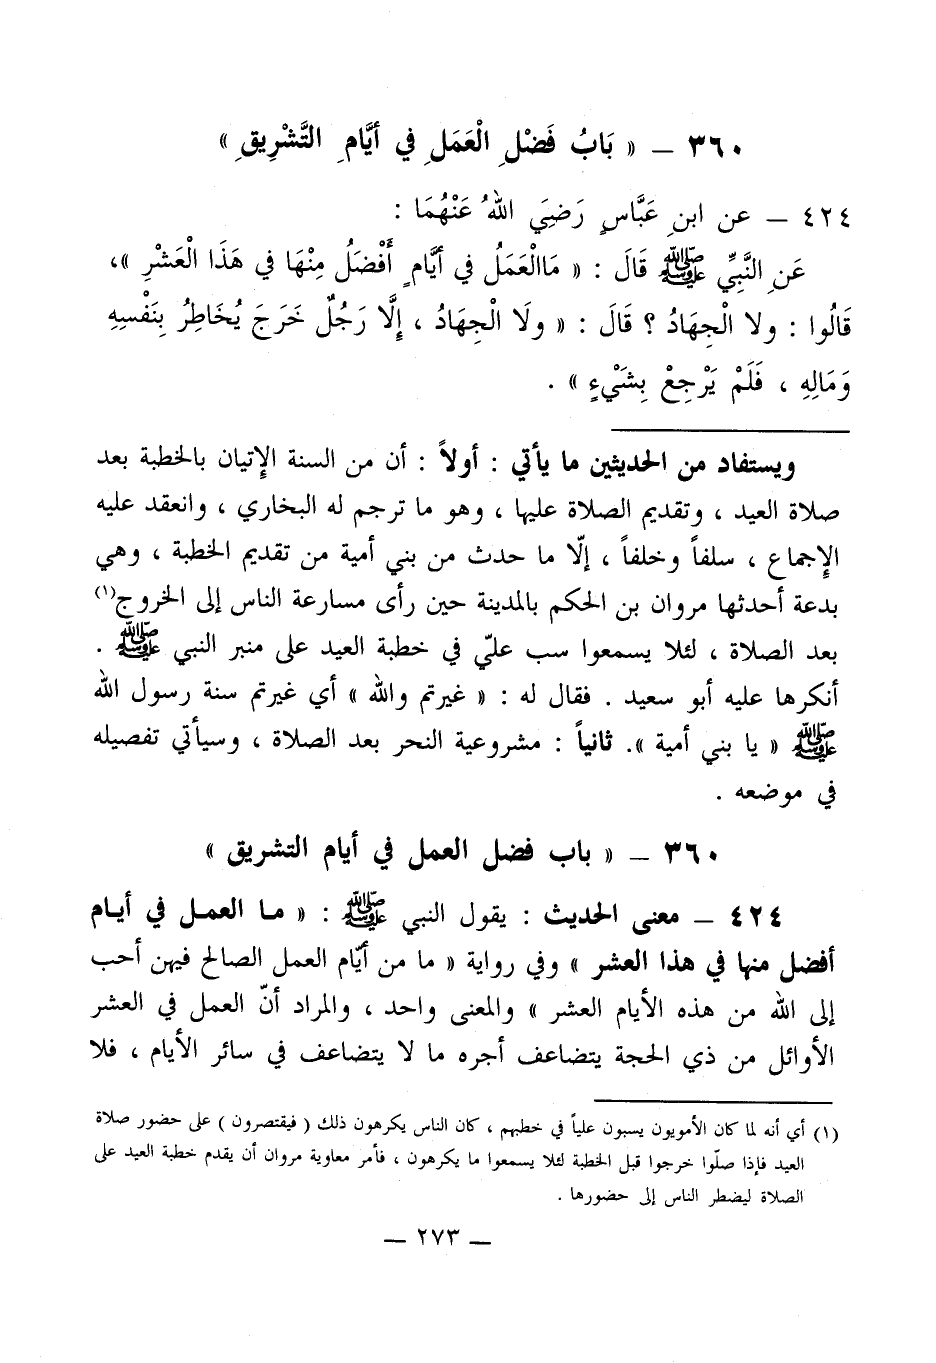 ٣٦٠ ـ « بَابُ فَضْلِ الْعَمَلِ في أيَّامِ التَّشْرِيقِ »
٤٢٤ ـ عن ابنِ عَبَّاسٍ رَضِيَ اللهُ عَنْهُمَا :
عَنِ النَّبِيِّ ﷺ قَالَ : « مَاالْعَمَلُ في أيَّامٍ أَفْضَلُ مِنْهَا في هَذَا الْعَشْرِ »،
قَالُوا : ولا الْجِهَادُ ؟ قَالَ : « ولَا الْجِهَادُ ، إِلَّا رَجُلٌ خَرَجَ يُخَاطِرُ بِنَفْسِهِ
وَمَالِهِ ، فَلَمْ يَرْجِعْ بِشَيْءٍ » .
ويستفاد من الحديثين ما يأتي : أولاً : أن من السنة الإتيان بالخطبة بعد
صلاة العيد ، وتقديم الصلاة عليها ، وهو ما ترجم له البخاري ، وانعقد عليه
الإجماع ، سلفاً وخلفاً ، إلّا ما حدث من بني أمية من تقديم الخطبة ، وهي
بدعة أحدثها مروان بن الحكم بالمدينة حين رأى مسارعة الناس إلى الخروج(١)
بعد الصلاة ، لئلا يسمعوا سب عليّ في خطبة العيد على منبر النبي ﷺ .
أنكرها عليه أبو سعيد . فقال له : « غيرتم والله » أي غيرتم سنة رسول الله
ﷺ « يا بني أمية ». ثانياً : مشروعية النحر بعد الصلاة ، وسيأتي تفصيله
في موضعه .
٣٦٠ ـ « باب فضل العمل في أيام التشريق »
٤٢٤ ـ معنى الحديث : يقول النبي ﷺ : « ما العمل في أيام
أفضل منها في هذا العشر » وفي رواية « ما من أيّام العمل الصالح فيهن أحب
إلى الله من هذه الأيام العشر » والمعنى واحد ، والمراد أنّ العمل في العشر
الأوائل من ذي الحجة يتضاعف أجره ما لا يتضاعف في سائر الأيام ، فلا
(١) أي أنه لما كان الأمويون يسبون علياً في خطبهم ، كان الناس يكرهون ذلك ( فيقتصرون ) على حضور صلاة
العيد فإذا صلّوا خرجوا قبل الخطبة لئلا يسمعوا ما يكرهون ، فأمر معاوية مروان أن يقدم خطبة العيد على
الصلاة ليضطر الناس إلى حضورها .
ـ ٢٧٣ ـ